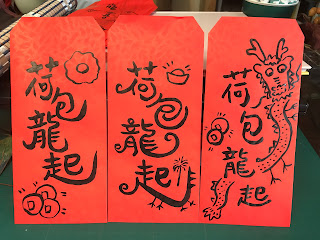 荷包龍起
荷包龍起
荷包龍起